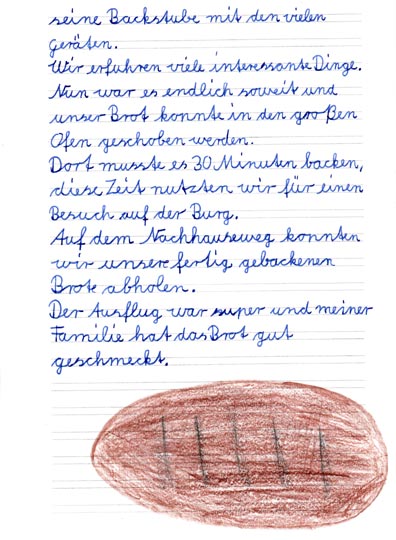 seine Backstube mit den vielen
geräten.
Wir erfuhren viele interessante Dinge.
Nun war es endlich soweit und
unser Brot konnte in den großen
Ofen geschoben werden.
Dort musste es 30 Minuten backen,
diese Zeit nutzten wir für einen
Besuch auf der Burg.
Auf dem Nachhauseweg konnten
wir unsere fertig gebackenen
Brote abholen.
Der Ausflug war super und meiner
Familie hat das Brot gut
geschmeckt.